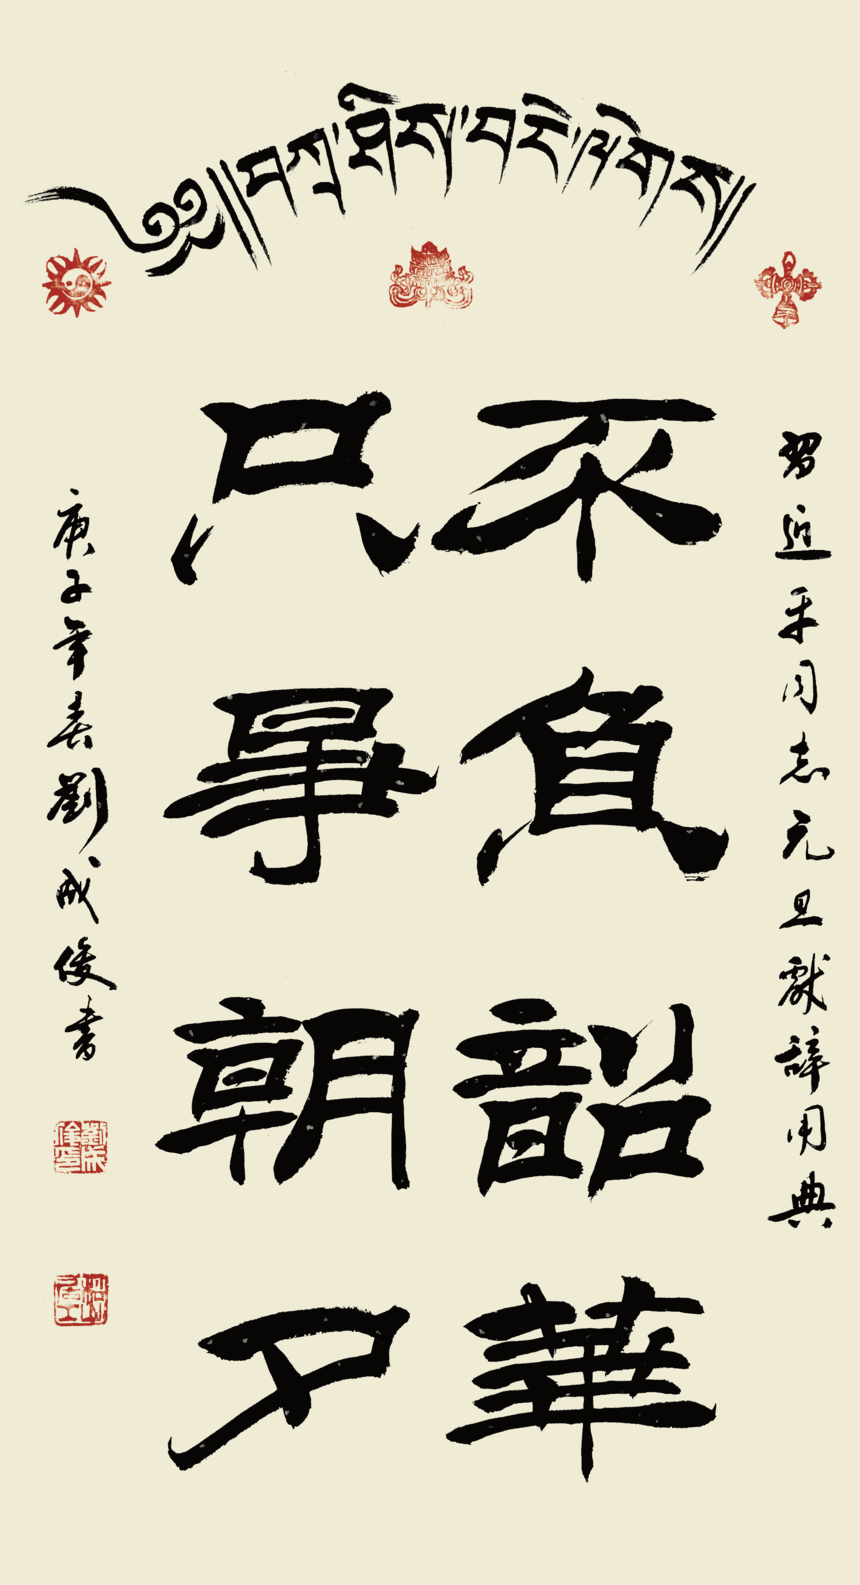 ༄༅།།བཀྲ་ཤིས་བདེ་ལེགས།།
習近平同志元旦獻辭用典
不負韶華
只爭朝夕
庚子年春劉成俊書